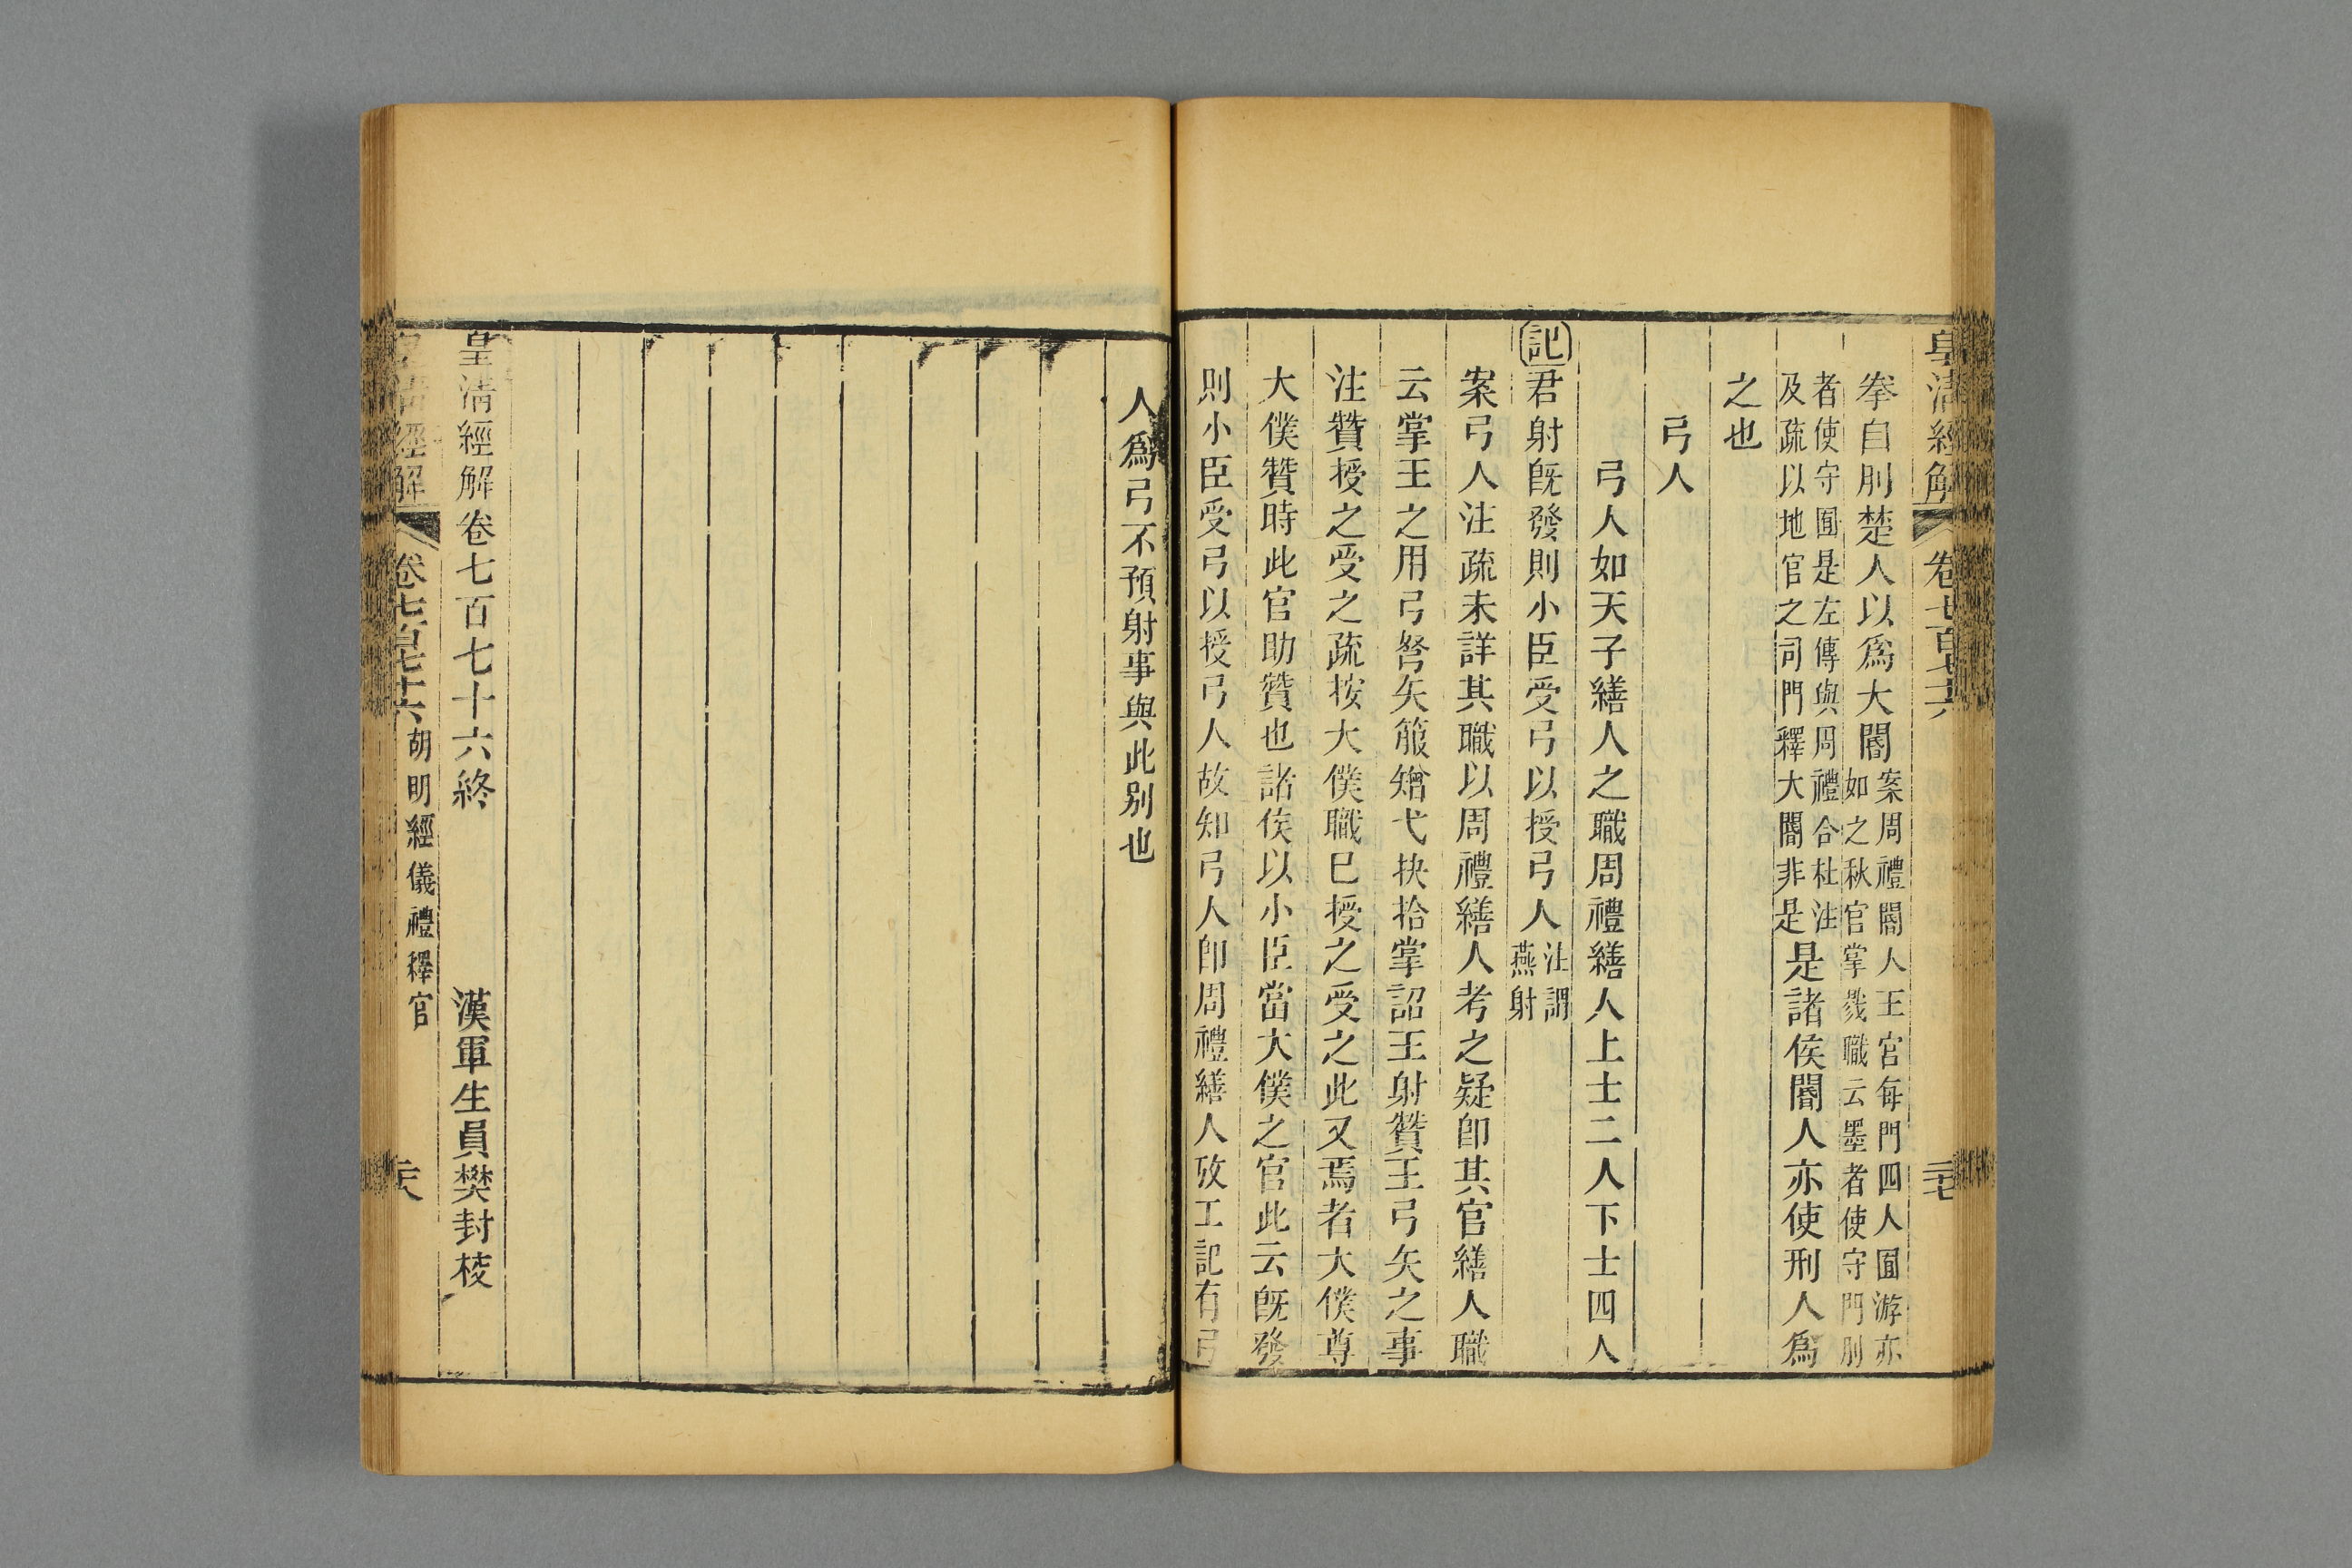 皇清經解 卷七百七十六 二十七
拳自刖楚人以爲大閽案周禮閽人王官每門四人囿游亦如之秋官掌戮職云墨者使守門刖
者使守囿是左傳與周禮合杜注及疏以地官之司門釋大閽非是是諸侯閽人亦使刑人爲
之也
弓人
弓人如天子繕人之職周禮繕人上士二人下士四人
記君射旣發則小臣受弓以授弓人注謂燕射
案弓人注疏未詳其職以周禮繕人考之疑卽其官繕人職
云掌王之用弓弩矢箙矰弋抉拾掌詔王射贊王弓矢之事
注贊授之受之疏按大僕職已授之受之此又焉者大僕尊
大僕贊時此官助贊也諸侯以小臣當大僕之官此云旣發
則小臣受弓以授弓人故知弓人卽周禮繕人攷工記有弓
人爲弓不預射事與此别也
皇清經解卷七百七十六終 漢軍生員樊封校
皇清經解 卷七百七十六 胡明經儀禮釋官 二十八